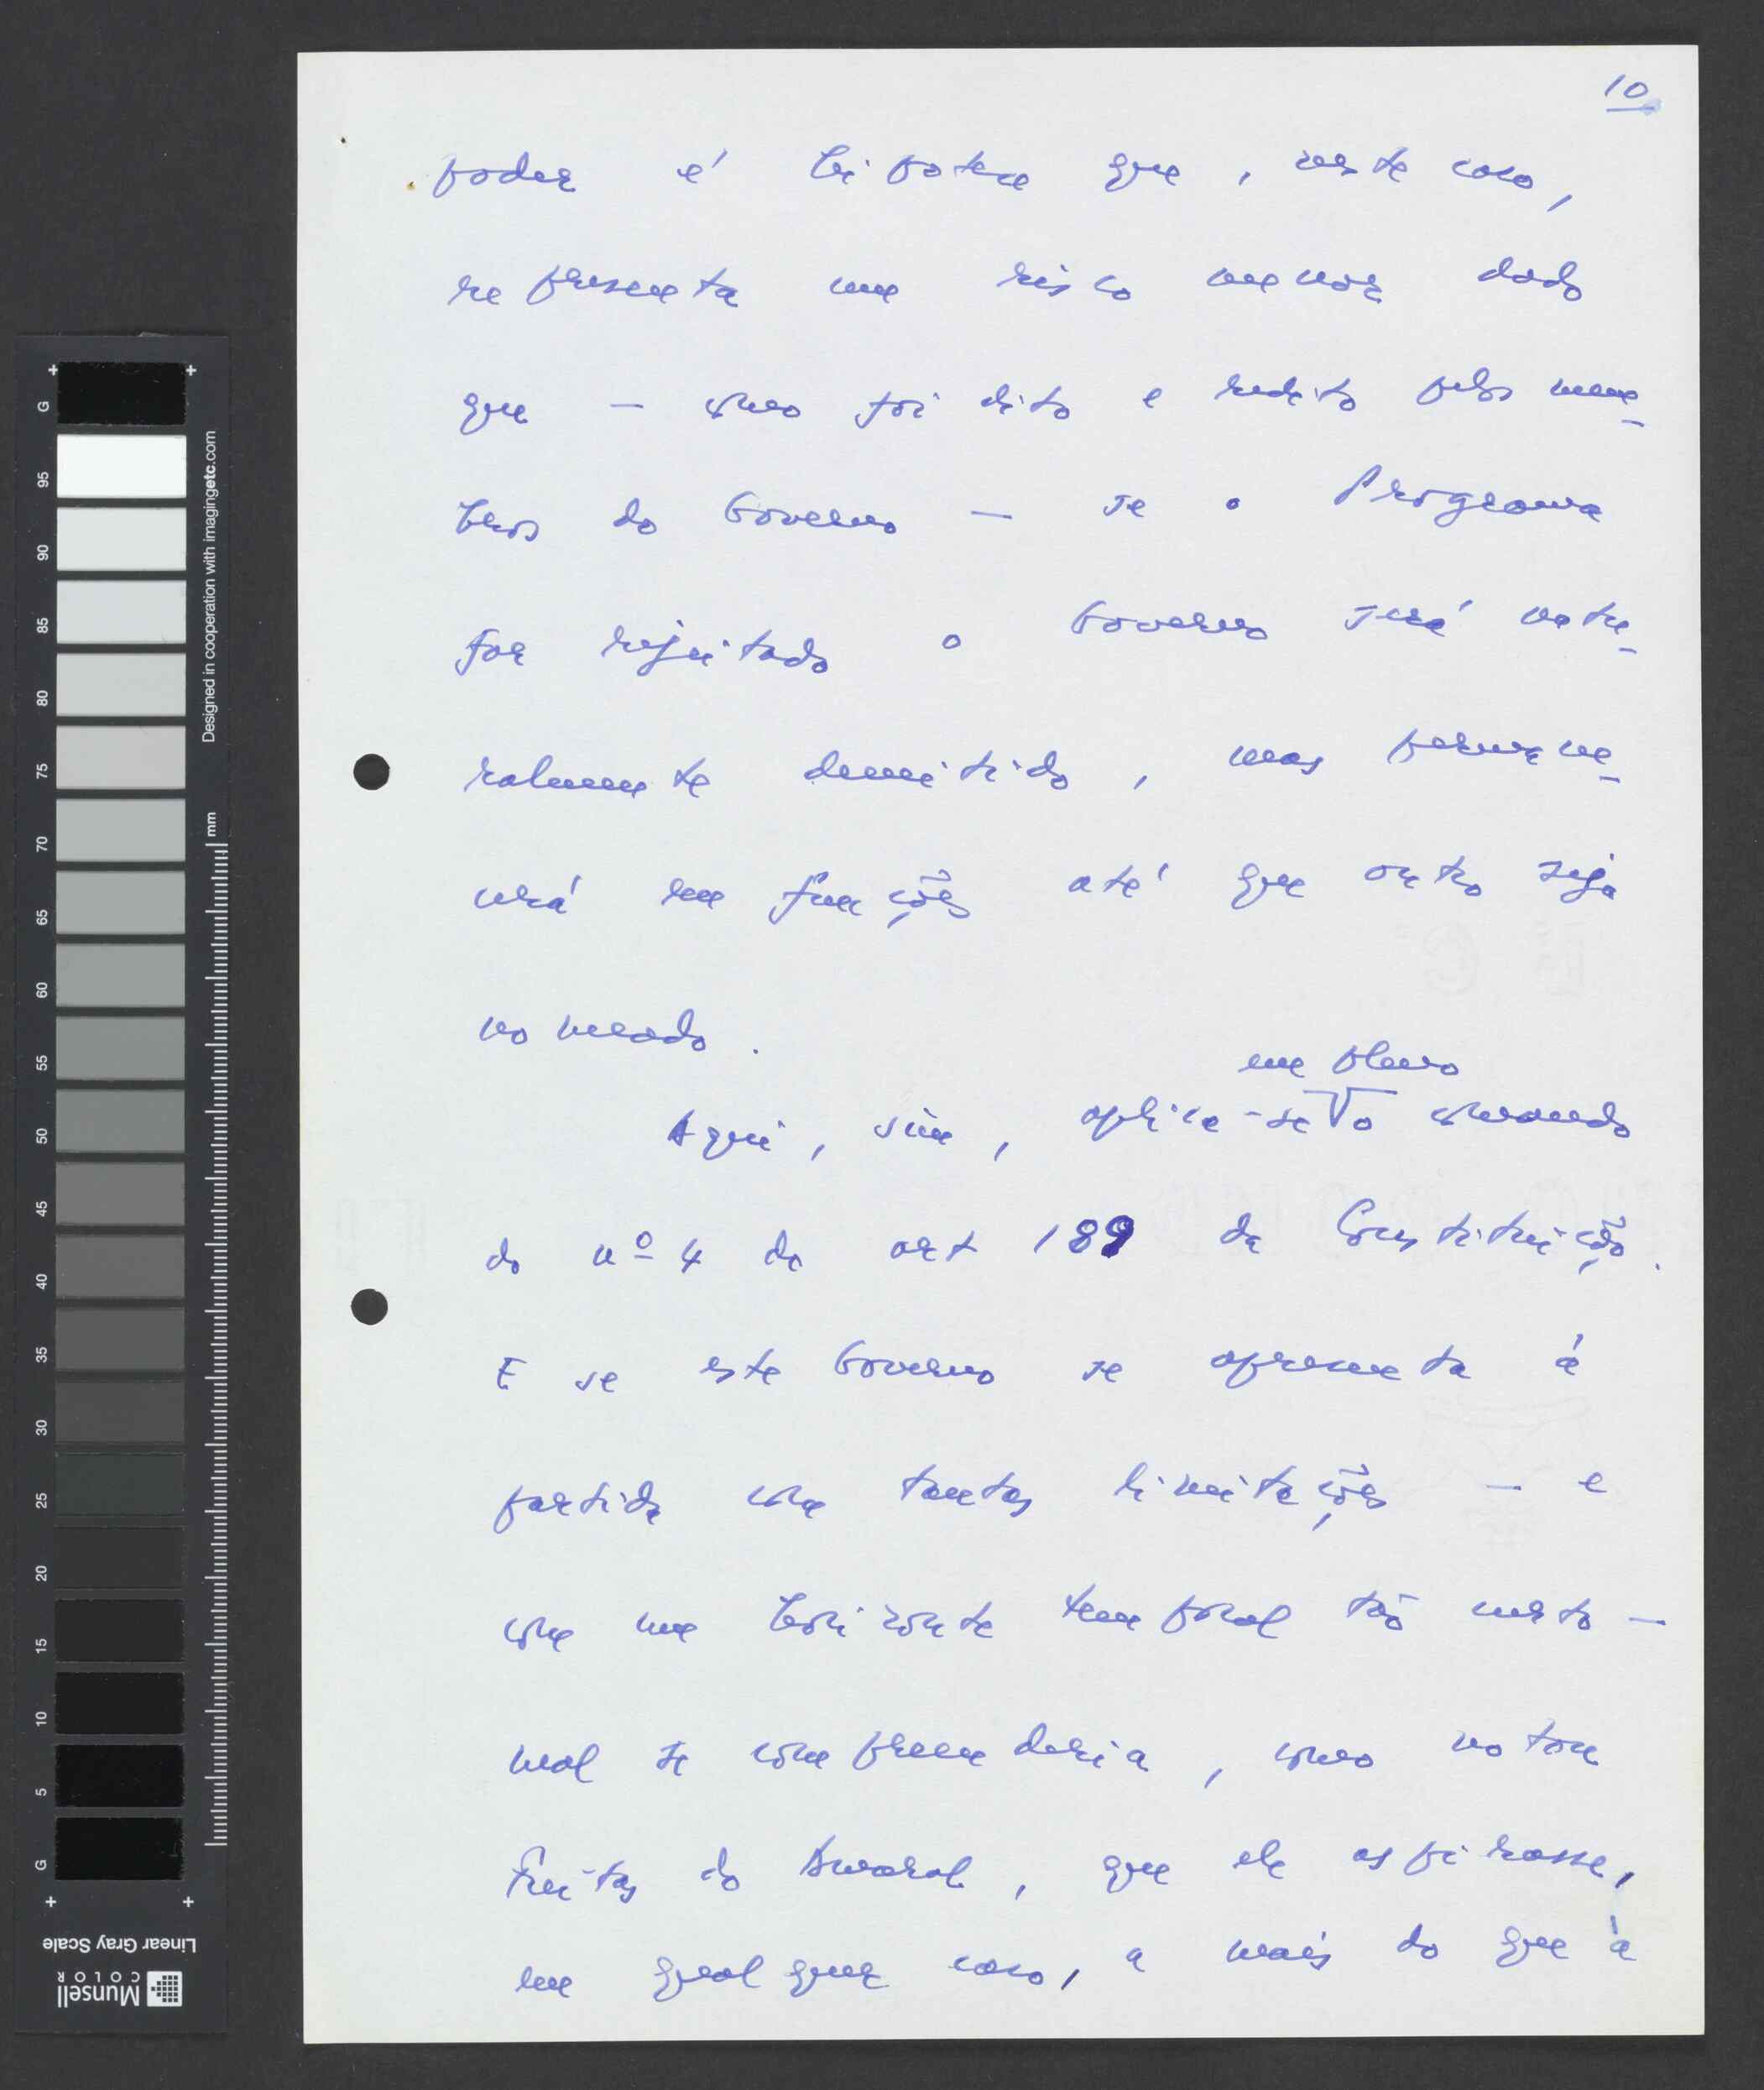 10
poder é hipótese que, neste caso,
representa um risco menor dado
que — como foi dito e redito pelos mem-
bros do Governo — se o Programa
for rejeitado o Governo será natu-
ralmente demitido, mas permane-
cerá em funções até que outro seja
nomeado.
em pleno
Aqui, sim, aplica-se o comando
do nº 4 do art 189 da Constituição.
E se este Governo se apresenta à
partida com tantas limitações — e
com um horizonte temporal tão curto —
mal se compreenderia, como notou
Freitas do Amaral, que ele aspirasse,
em qualquer caso, a mais do que à
G
95
90
85
80
75
70
65
60
55
50
45
40
35
30
25
20
15
10
5
G
mm
Designed in cooperation with imagingetc.com
Linear Gray Scale
Munsell
COLOR